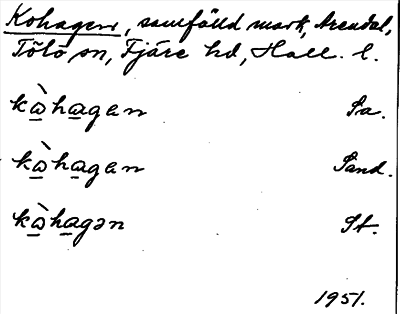 Kohagen, samfälld mark, Arendal,
Tölö sn, Fjäre hd, Hall. l.
kὼ̲ha̲gan Sa.
kὼ̲ha̲gan Sand.
kὼ̲ha̲gən St.
1951.